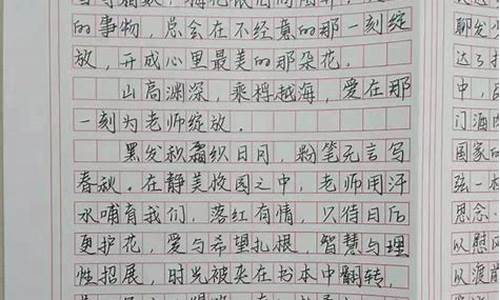 的事物，总会在不经意的那一刻绽
放，开成心里最美的那朵花。
山高渊深，乘桴越海，爱在那
一刻为老师绽放．
黑发积霜织日月，粉笔无言写
春秋．在静美校园之中，老师用汗
水哺育我们，落红有情，只待日后
更护花，爱与希望扎根，智慧与理
性招展，时光被夹在书本中翻转，
聊发
达了
中，
门酒
国家的
弦一
思念
以慰风
从渡前